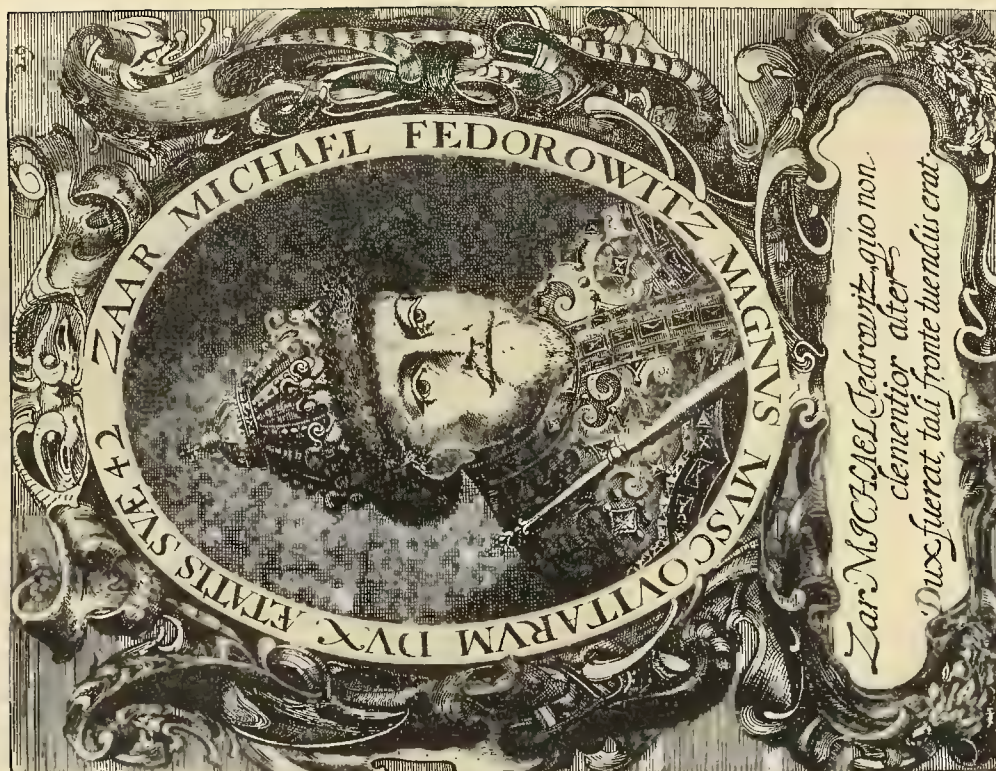 ZAAR MICHAEL FEDOROWITZ MAGNVS MVSCOVITARVM DVX. ÆTATIS SVÆ 42
Zar MICHAEL Fedrowitz, quo non
clementior alter
Dux fuerat, tali fronte tuendus erat